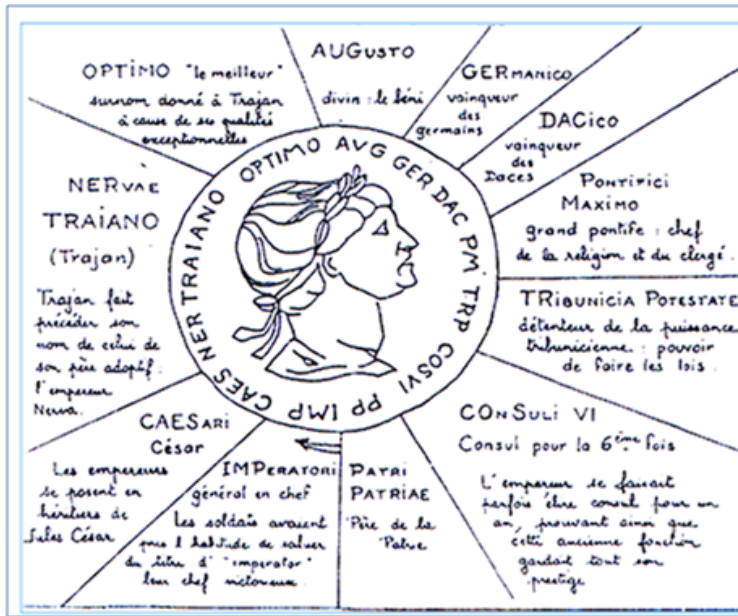 OPTIMO "le meilleur"
surnom donné à Trajan
à cause de ses qualités
exceptionnelles
AUGusto
divin : le béni
GERmanico
vainqueur
des
germains
DACico
vainqueur
des
Daces
PONTIFICI
MAXIMO
grand pontife : chef
de la religion et du clergé.
TRIBUNICIA POTESTATE
détenteur de la puissance
tribunicienne : pouvoir
de faire les lois.
CONSULI VI
Consul pour la 6ème fois
L'empereur se faisait
parfois élire consul pour un
an, prouvant ainsi que
cette ancienne fonction
gardait tout son
prestige
PATRI
PATRIAE
Père de la
Patrie
IMPERATORI
général en chef
Les soldats avaient
pris l'habitude de saluer
du titre d' "imperator"
leur chef victorieux.
CAESari
César
Les empereurs
se posent en
héritiers de
Jules César
NERVAE
TRAIANO
(Trajan)
Trajan fait
précéder son
nom de celui de
son père adoptif.
l'empereur
Nerva.
IMP CAES NERTRAIANO OPTIMO AVG GER DAC PM TRP COSVI PP